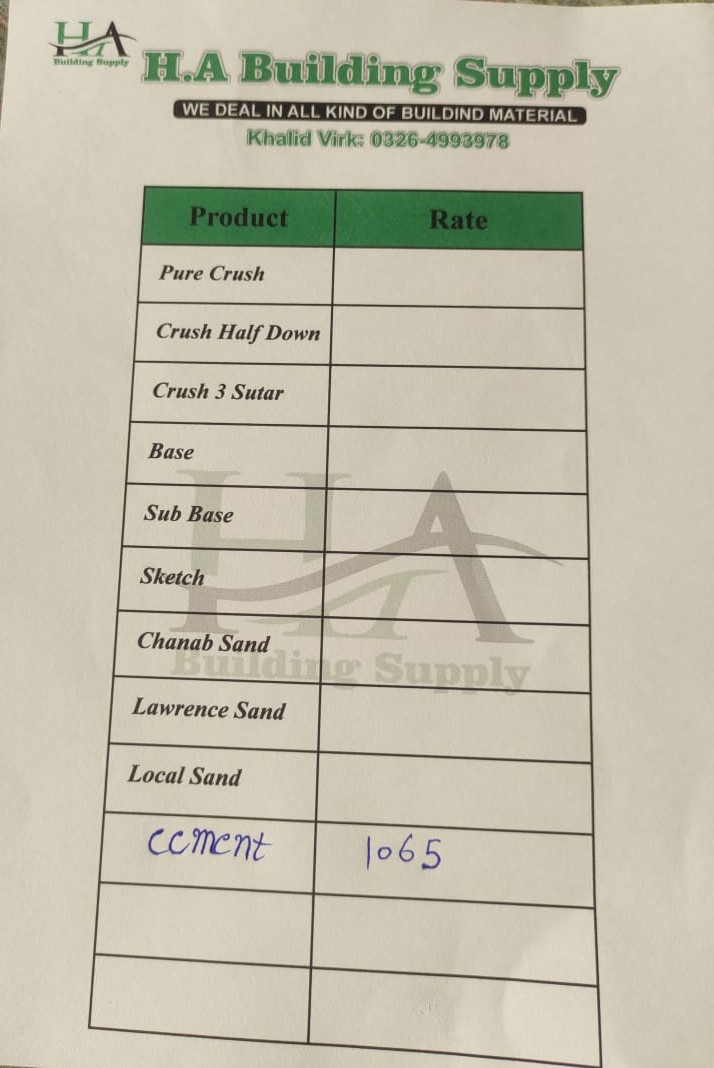 HA
Building Supply
H.A Building Supply
WE DEAL IN ALL KIND OF BUILDIND MATERIAL
Khalid Virk: 0326-4993978
Product Rate
Pure Crush
Crush Half Down
Crush 3 Sutar
Base
Sub Base
Sketch
Chanab Sand
HA
Building Supply
Lawrence Sand
Local Sand
cement 1065